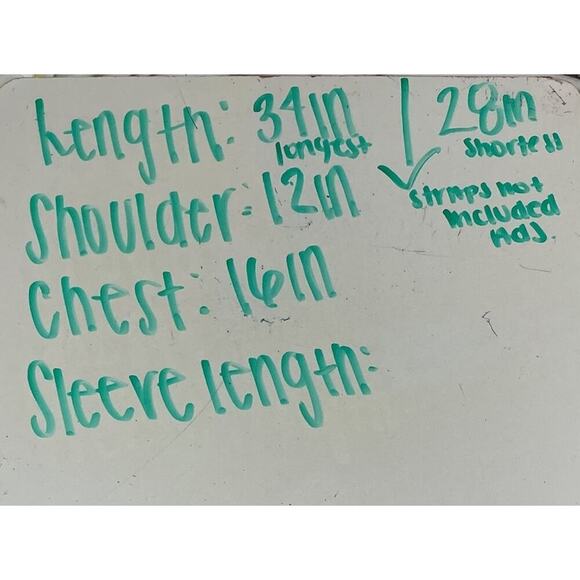 Length: 34in 28in
longest shortess
Shoulder: 12in
straps not
included
Chest: 16in
Sleeve length: